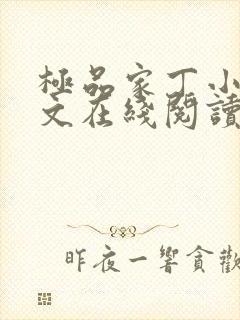 極品家丁小
文在綫閱讀
昨夜一響貪歡